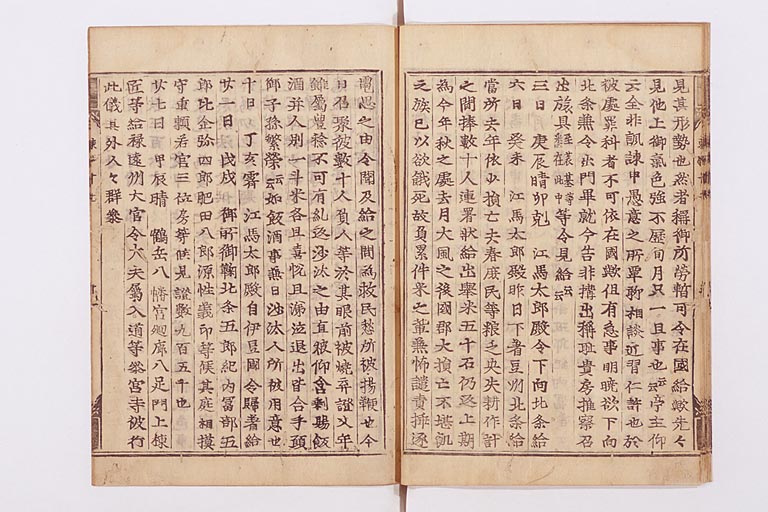 見其形勢也然者搆御所勞暫可令在國給歟先々
見他上御氣色強不歷旬月只一旦事也云々亭主仰
云全非諷諫申愚意之所覃聊相談近習仁許也於
被處罪科者不可依在國歟但有急事明曉欲下向
北条兼令出門畢就今告非搆出稱貴房推察召
出旅具等令見給云云
三日 庚辰晴卯尅 江馬太郎殿令下向北条給
六日 癸未 江馬太郎殿昨日下著豆州北条給
當所去年依少損亡去春庶民等粮乏央失耕作計
之間捧數十人連署狀給出擧米五十石仍返上期
為今年秋之處去月大風之後國郡大損亡不堪飢
之族已以欲餓死故負累件米之輩兼怖譴責揷逐
電思之由令聞及給之間爲救民愁所被揚鞭也今
日召聚彼數十人負人等於其眼前被燒弃證文年
雖屬豊稔不可有糺返沙汰之由直被仰含剩賜飯
酒并人別一斗米各且喜悅且涕泣退出皆合手願
御子孫繁榮云云如飯酒事兼日沙汰人所被用意也
十日 丁亥霽 江馬太郎殿自伊豆國令歸著給
廿一日 戊戌 御所御鞠北条五郎紀内冨部五
郎比企弥四郎肥田八郎源性義印等候其庭相摸
守重頼若宮三位房等候見證數九百五十也
廿七日 甲辰晴 鶴岳八幡宮廻廊八足門上棟
匠等給禄遠州大官令大夫屬入道等參宮寺被行
此儀其外人々群參